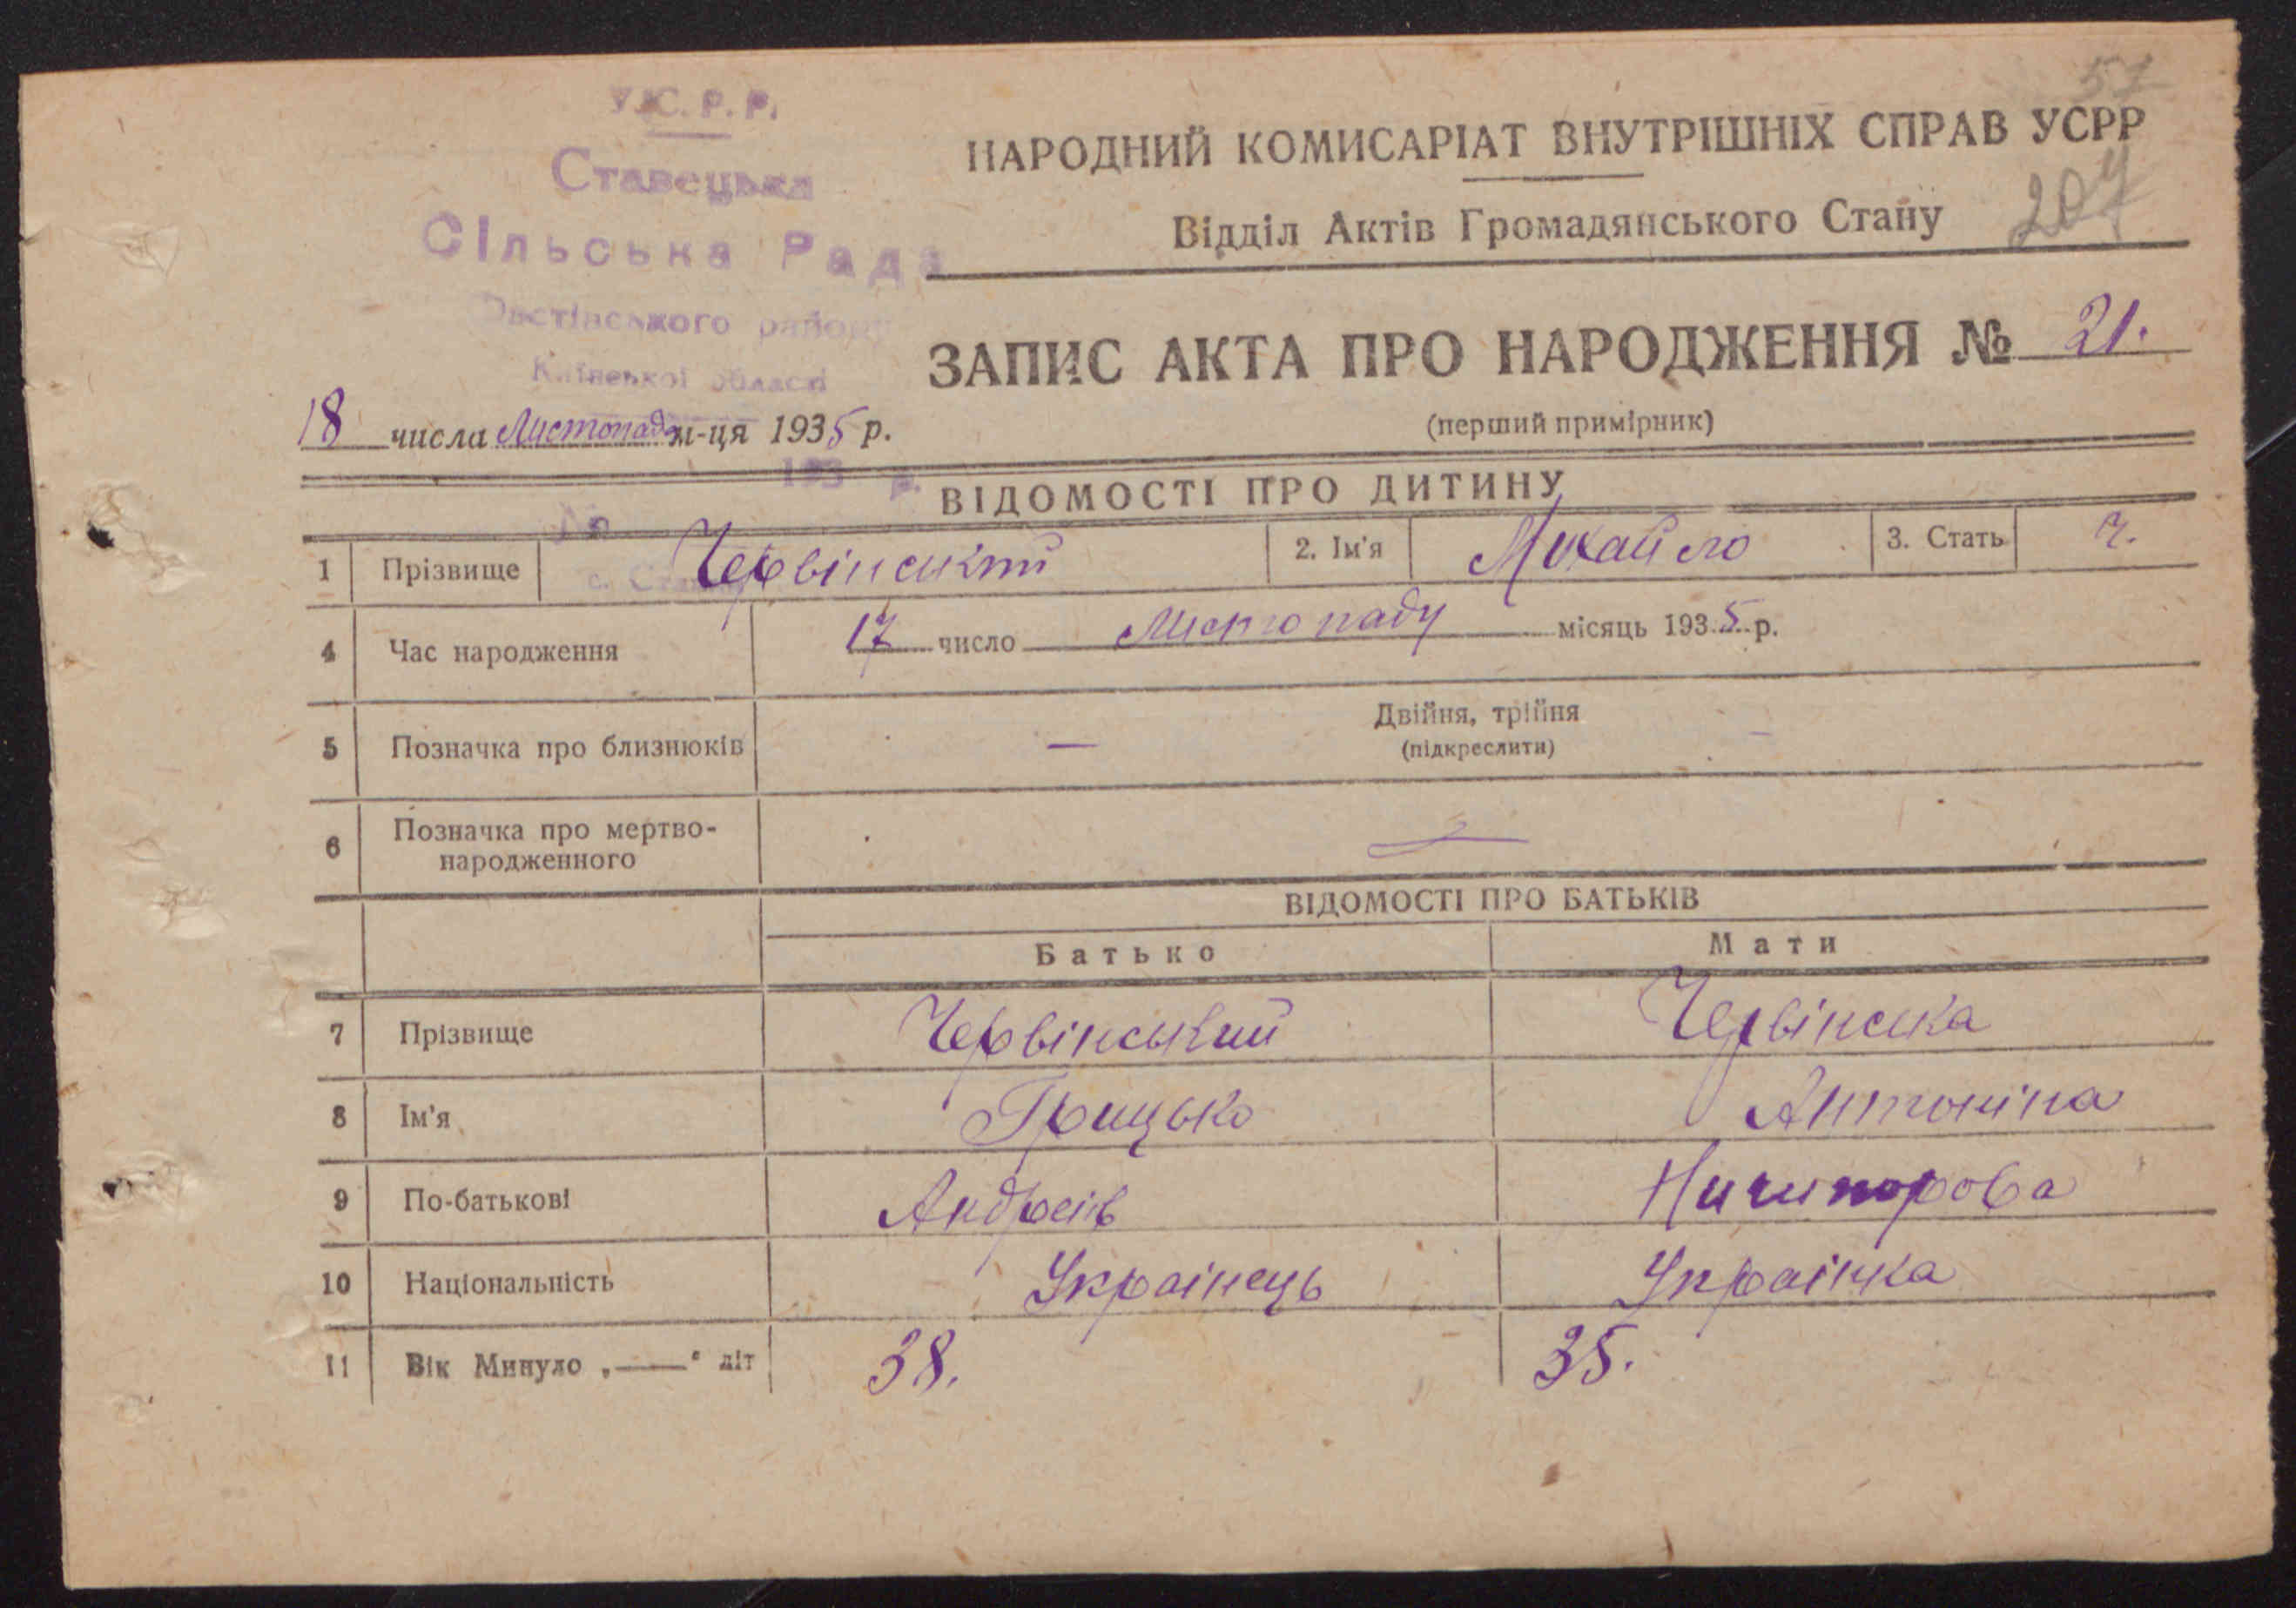 57
У.С.Р.Р.
НАРОДНИЙ КОМИСАРІАТ ВНУТРІШНІХ СПРАВ УСРР
Ставецька
Відділ Актів Громадянського Стану
207
Сільська Рада
району
ЗАПИС АКТА ПРО НАРОДЖЕННЯ № 21.
Київської області
(перший примірник)
18 числа Листопада м-ця 1935 р.
193 р.
ВІДОМОСТІ ПРО ДИТИНУ
1 Прізвище Червінський 2. Ім'я Михайло 3. Стать ч.
с.
4 Час народження 17 число Листопаду місяць 1935 р.
5 Позначка про близнюків — Двійня, трійня
(підкреслити)
6 Позначка про мертво-
народженного —
ВІДОМОСТІ ПРО БАТЬКІВ
Батько Мати
7 Прізвище Червінський Червінська
8 Ім'я Грицько Антоніна
9 По-батькові Андреїв Ничипорова
10 Національність Українець Українка
11 Вік Минуло „—“ літ 38. 35.